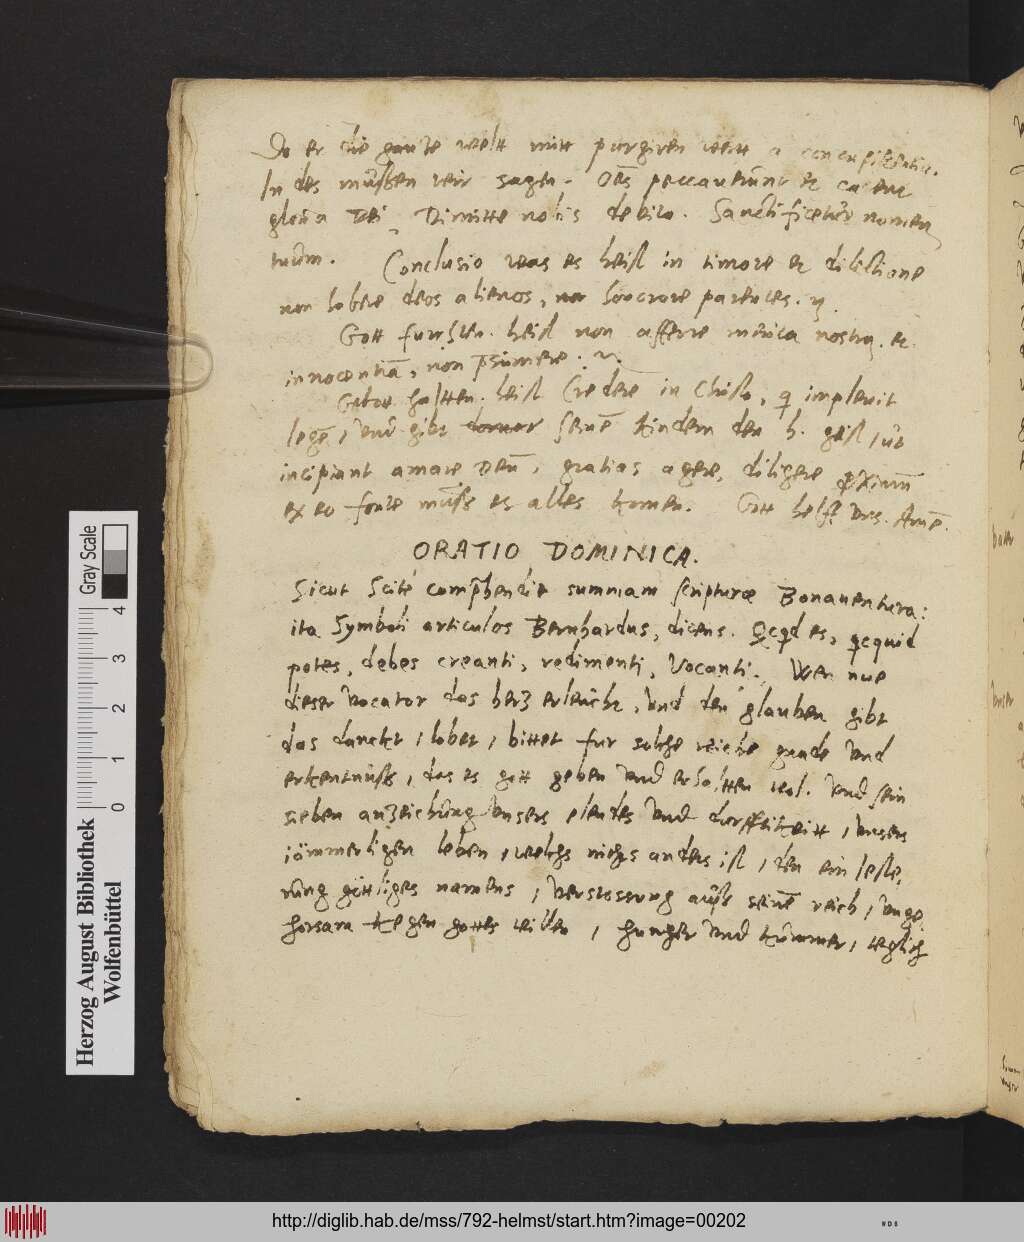 Do er die gantze welt mitt purgiren wertt a concupiscentia.
In des müssen wir sagen. Oēs peccaverunt et carent
gloria Dei, Dimitte nobis debita. Sanctificetur nomen
tuum. Conclusio was es heist in timore et dilectione
non habere deos alienos, honorare parentes.
Gott furchten. heist non afferre merita nostra. et
innocentiā, non p̄sumere.
Gebott haltten. heist Credere in Christo, q implevit
legē, und gibt seinē kindern den h. geist, ut
incipiant amare Deū, gratias agere, diligere proximū
ex eo fonte müss es alles komen. Gott helff uns. Amē.
ORATIO DOMINICA.
Sicut Scite comp̄hendit summam scripturæ Bonaventura:
ita Symboli articulos Bernhardus, dicens. Qcqd es, qcquid
potes, debes creanti, redimenti, vocanti. Wer nue
dieser vocator das herz erleucht, und den glauben gibt
das dancket, lobet, bittet fur solche reiche gnade und
erkentnüss, das es gott geben und erhaltten wol. und sein
sieben anzeichung unsers elendes und dorfftikeitt, unsers
jämmerligen leben, welchs nichs anders ist, den ein leste,
rung göttliges namens, verstossung auss seinē reich, unge
horsam kegen gottes willen, hunger und kümmer,
Gray Scale
0 1 2 3 4
Herzog August Bibliothek
Wolfenbüttel
http://diglib.hab.de/mss/792-helmst/start.htm?image=00202